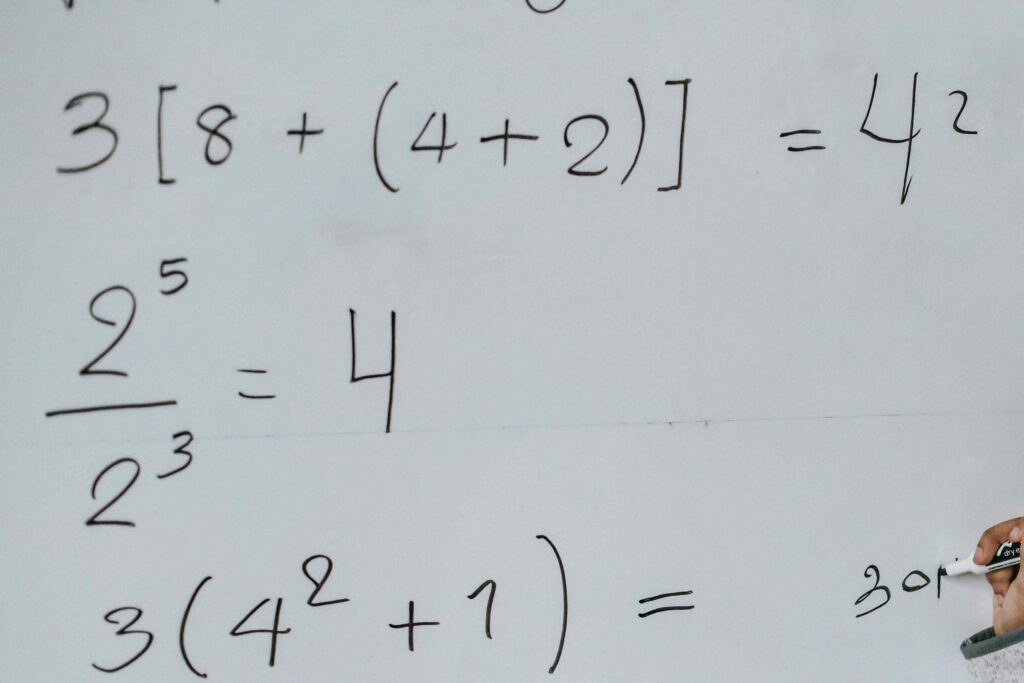 3[8 + (4+2)] = 4²
2⁵/2³ = 4
3(4² + 1) = 30